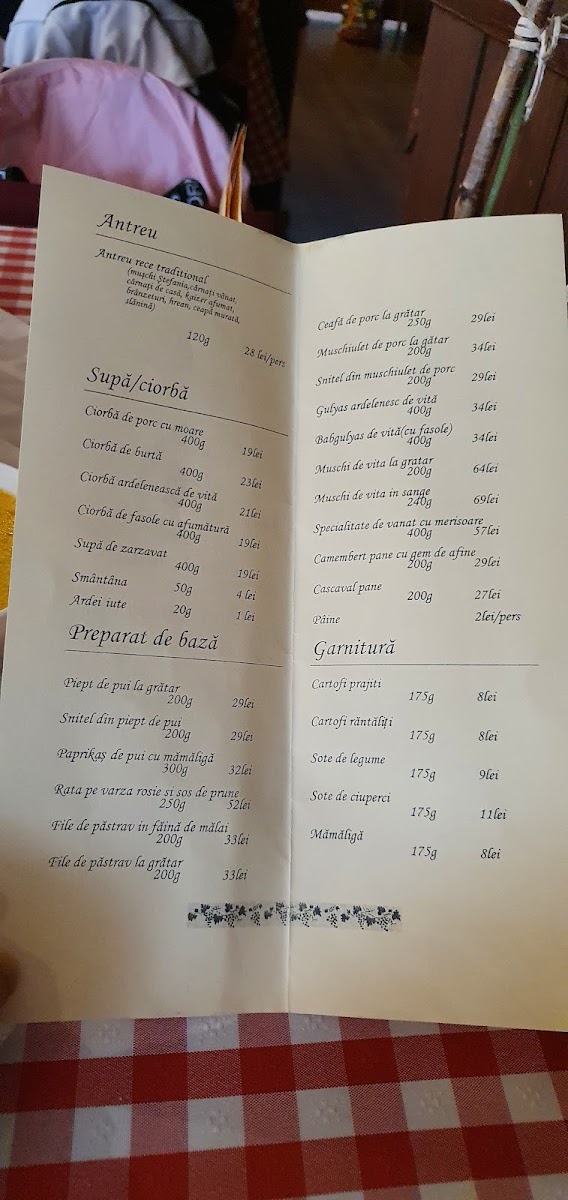 Antreu
Antreu rece traditional
(muşchi Ştefania,cârnaţi vânat,
cârnaţi de casă, kaizer afumat,
brânzeturi, hrean, ceapă murată,
slănină)
120g
28 lei/pers
Supă/ciorbă
Ciorbă de porc cu moare
400g 19lei
Ciorbă de burtă
400g 23lei
Ciorbă ardelenească de vită
400g 21lei
Ciorbă de fasole cu afumătură
400g 19lei
Supă de zarzavat
400g 19lei
Smântâna
50g 4 lei
Ardei iute
20g 1 lei
Preparat de bază
Piept de pui la grătar
200g 29lei
Snitel din piept de pui
200g 29lei
Paprikaş de pui cu mămăligă
300g 32lei
Rata pe varza rosie si sos de prune
250g 52lei
File de păstrav in făină de mălai
200g 33lei
File de păstrav la grătar
200g 33lei
Ceafă de porc la grătar
250g 29lei
Muschiulet de porc la gătar
200g 34lei
Snitel din muschiulet de porc
200g 29lei
Gulyas ardelenesc de vită
400g 34lei
Babgulyas de vită(cu fasole)
400g 34lei
Muschi de vita la gratar
200g 64lei
Muschi de vita in sange
240g 69lei
Specialitate de vanat cu merisoare
400g 57lei
Camembert pane cu gem de afine
200g 29lei
Cascaval pane
200g 27lei
Pâine 2lei/pers
Garnitură
Cartofi prajiti
175g 8lei
Cartofi răntăliţi
175g 8lei
Sote de legume
175g 9lei
Sote de ciuperci
175g 11lei
Mămăligă
175g 8lei